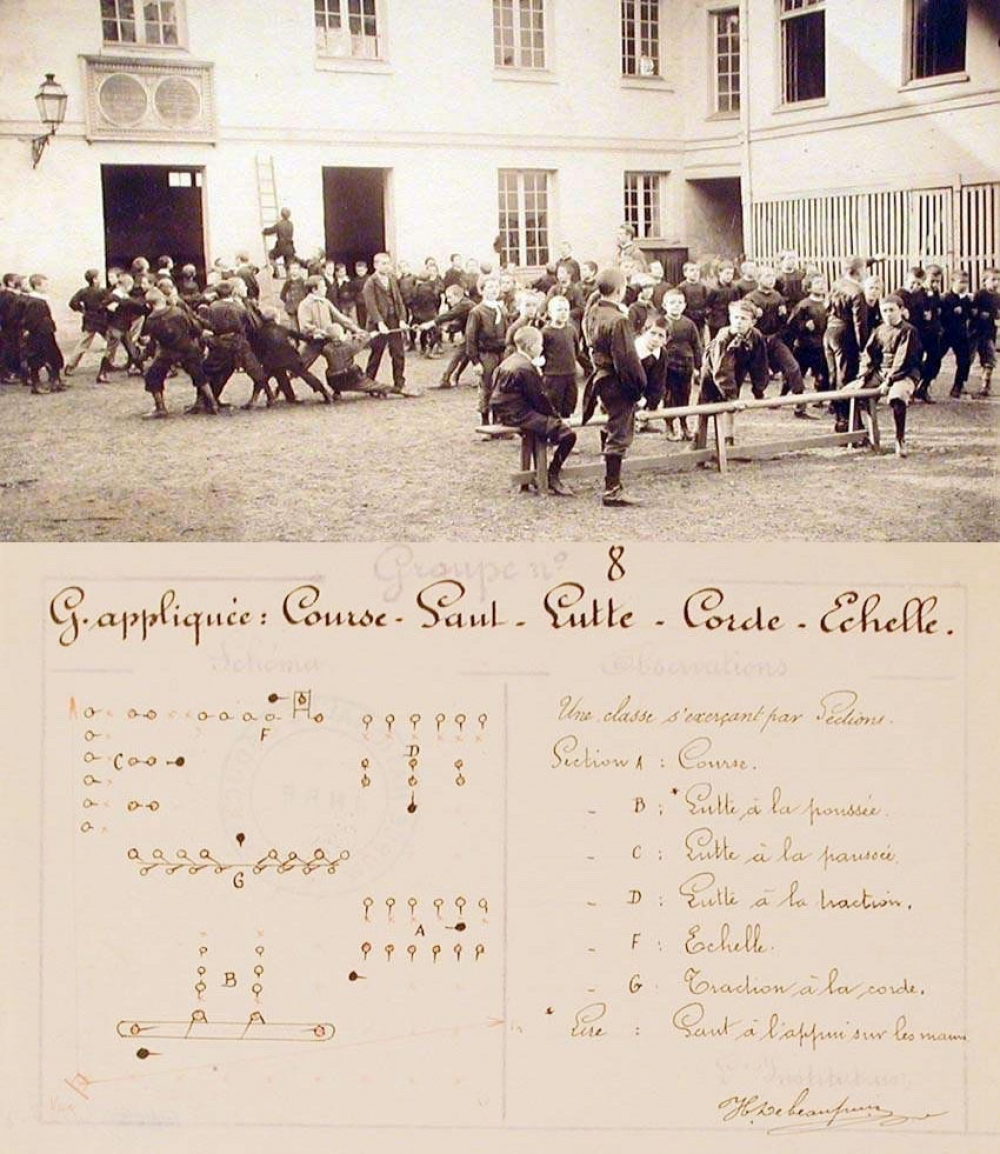 Groupe nº 8
G. appliquée : Course - Saut - Lutte - Corde - Echelle.
Schéma
Observations
A
F
C
D
G
A
B
Une classe s'exerçant par Sections.
Section A : Course.
- B : * Lutte à la poussée.
- C : Lutte à la poussée.
- D : Lutte à la traction.
- F : Echelle.
- G : Traction à la corde.
* Lire : Saut à l'appui sur les mains